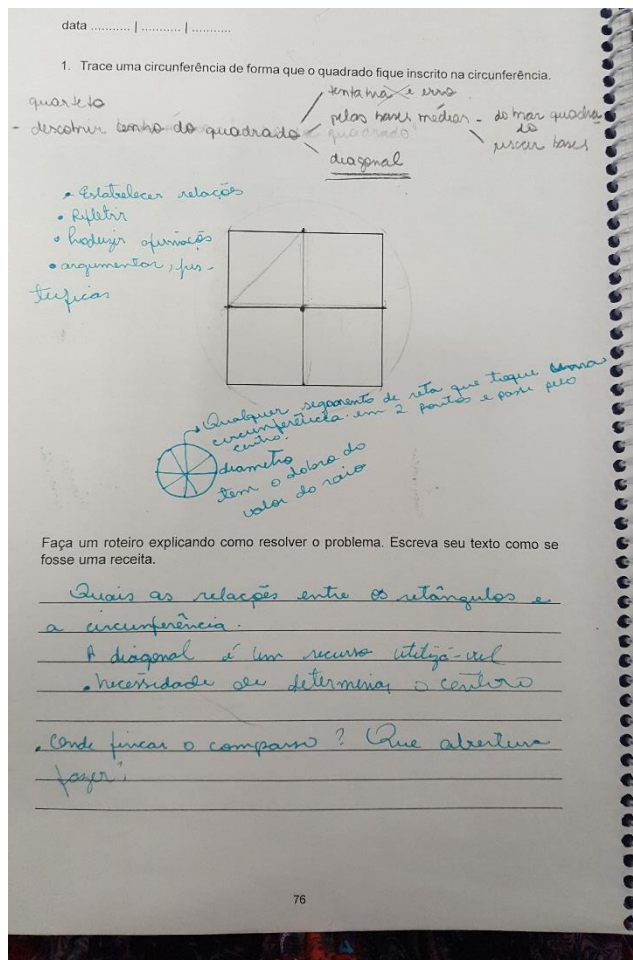 data ........... | ........... | ...........
1. Trace uma circunferência de forma que o quadrado fique inscrito na circunferência.
quarteto
tentativa e erro
- descobrir centro do quadrado
pelas bases médias - dobrar quadrado
riscar bases
diagonal
• Estabelecer relações
• Refletir
• Produzir afirmações
• argumentar, jus-
tificar
Qualquer segmento de reta que toque uma
circunferência em 2 pontos e passe pelo
centro.
diametro
tem o dobro do
valor do raio
Faça um roteiro explicando como resolver o problema. Escreva seu texto como se
fosse uma receita.
Quais as relações entre os retângulos e
a circunferência.
A diagonal é um recurso utilizá-vel
• necessidade de determinar o centro
• Onde fincar o compasso? Que abertura
fazer?
76